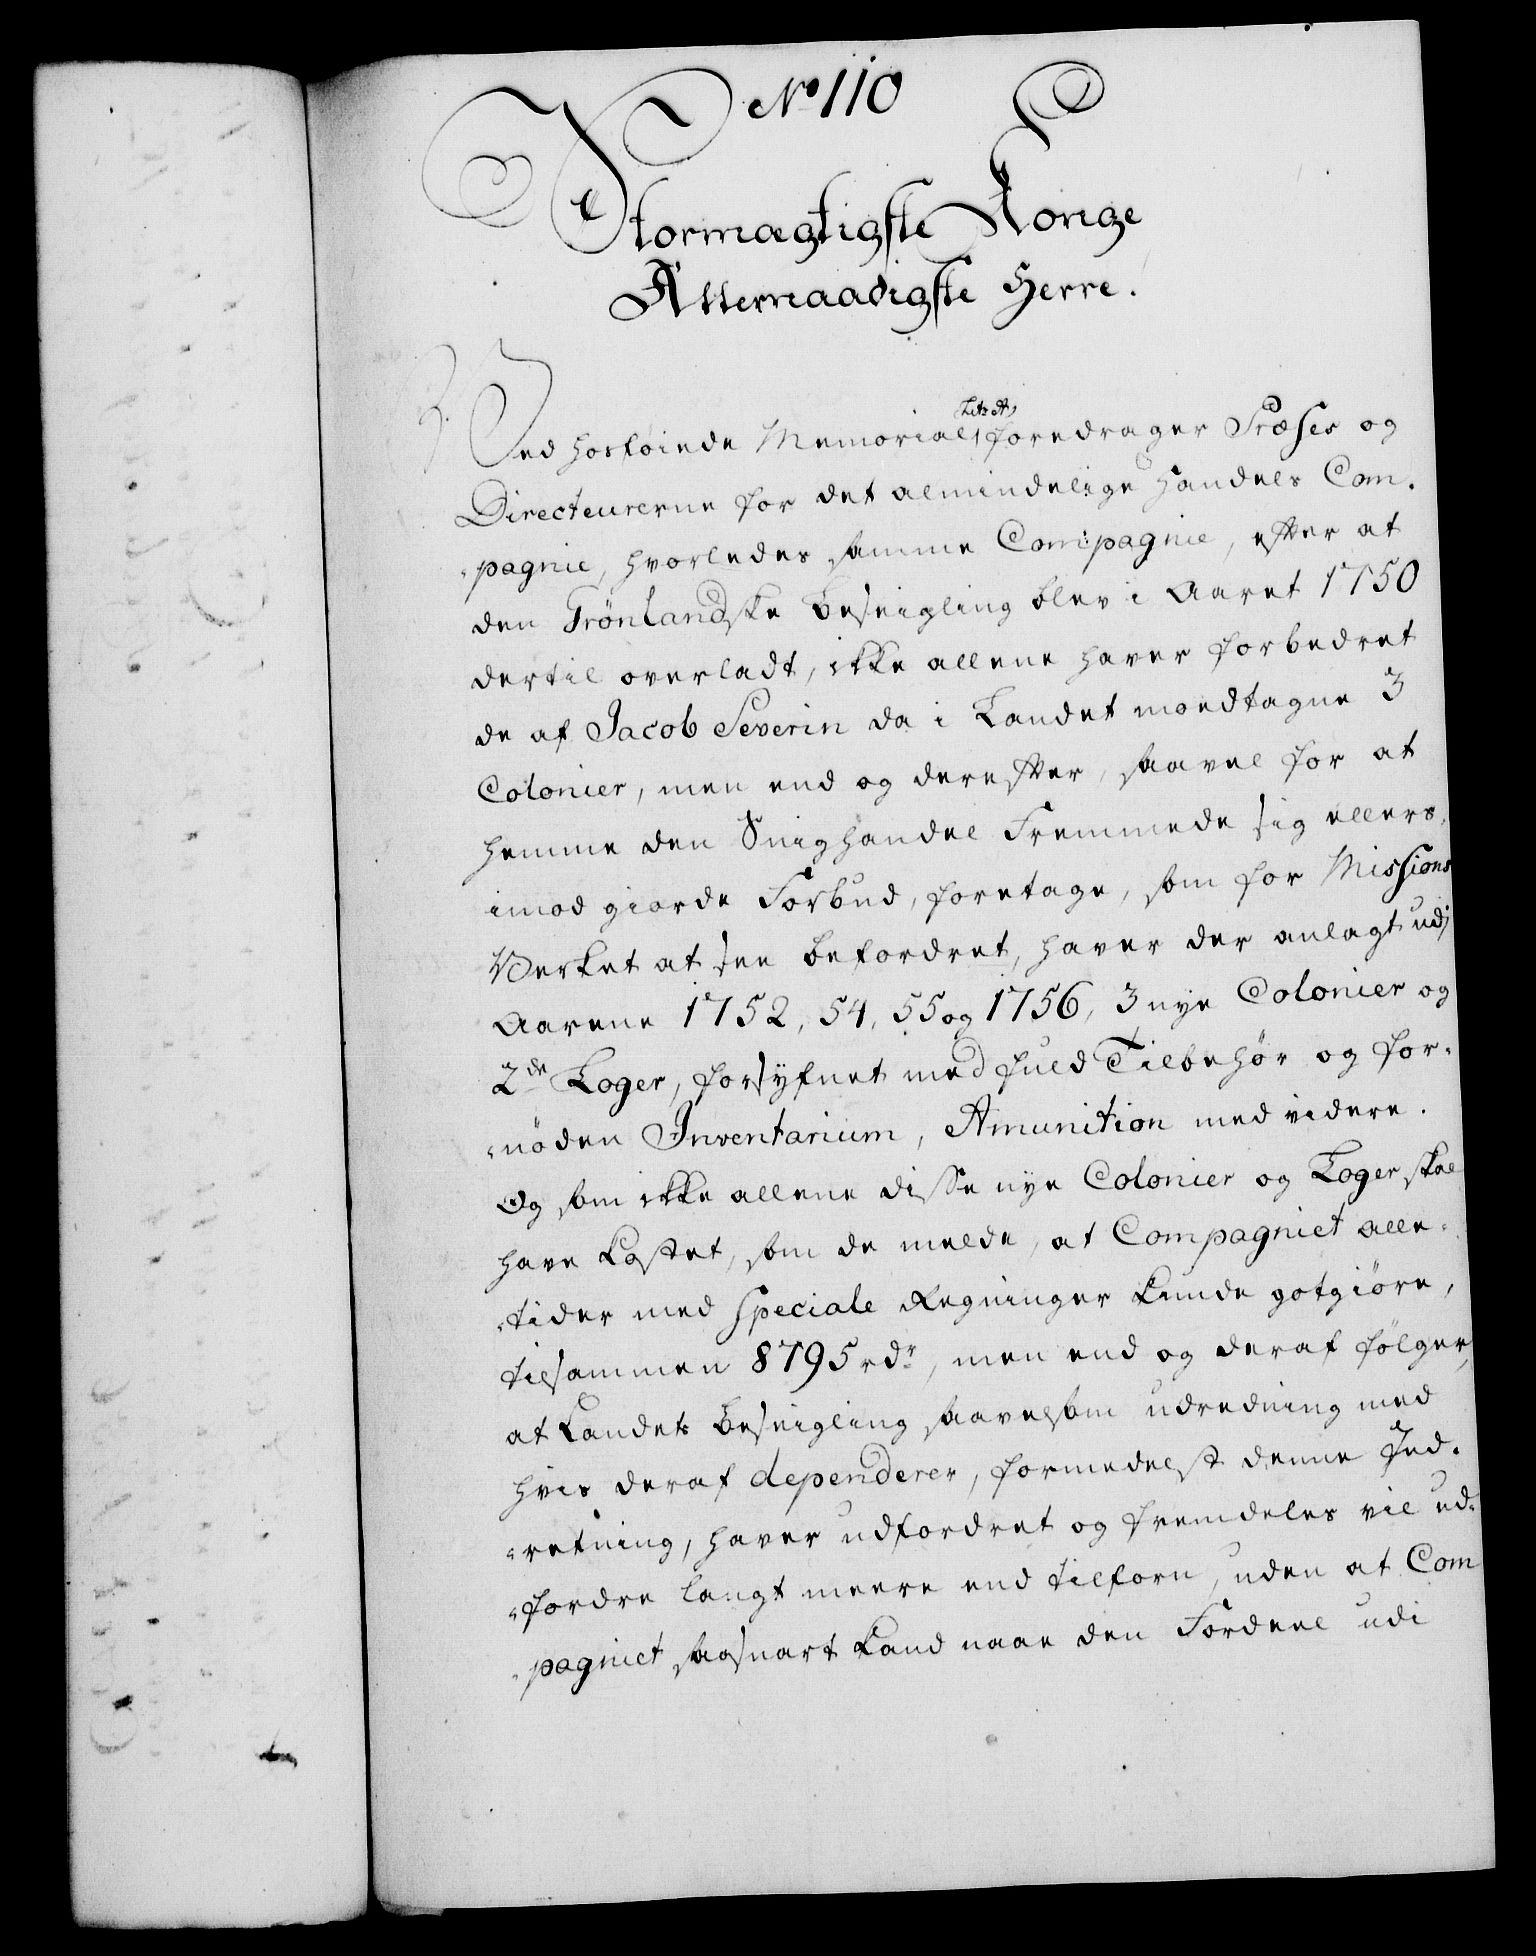 No 110
Stormægtigste Konge
Allernaadigste Herre.
Litr A,
Ved hosføiede Memorial, foredrager Præses og
Directeurerne for det almindelige Handels Com-
-pagnie, hvorledes samme Compagnie, efter at
den Grönlandske Beseigling blev i Aaret 1750
dertil overladt, ikke allene haver forbedret
de af Jacob Severin da i Landet modtagne 3
Colonier, men end og derefter, saavel for at
hemme den Snighandel Fremmede sig ellers,
imod giorde Forbud, foretage, som for Missions
Verket at see befordret, haver der anlagt udj
Aarene 1752, 54, 55 og 1756, 3 nye Colonier og
2de Loger, forsyfnet med fuld Tilbehör og for-
-nöden Inventarium, Amunition med videre.
Og som ikke allene disse nye Colonier og Loger skal
have kostet, som de melde, at Compagniet alle-
-tider med Speciale Regninger kunde gotgiöre,
tilsammen 8795 rdr, men end og deraf fölger,
at Landets Beseigling saavelsom udredning med
hvis deraf dependerer, formedelst denne Ind-
-retning, haver udfordret og fremdeles vil ud-
-fordre langt meere end tilforn, uden at Com
-pagniet saasnart kand naae den Fordeel udi